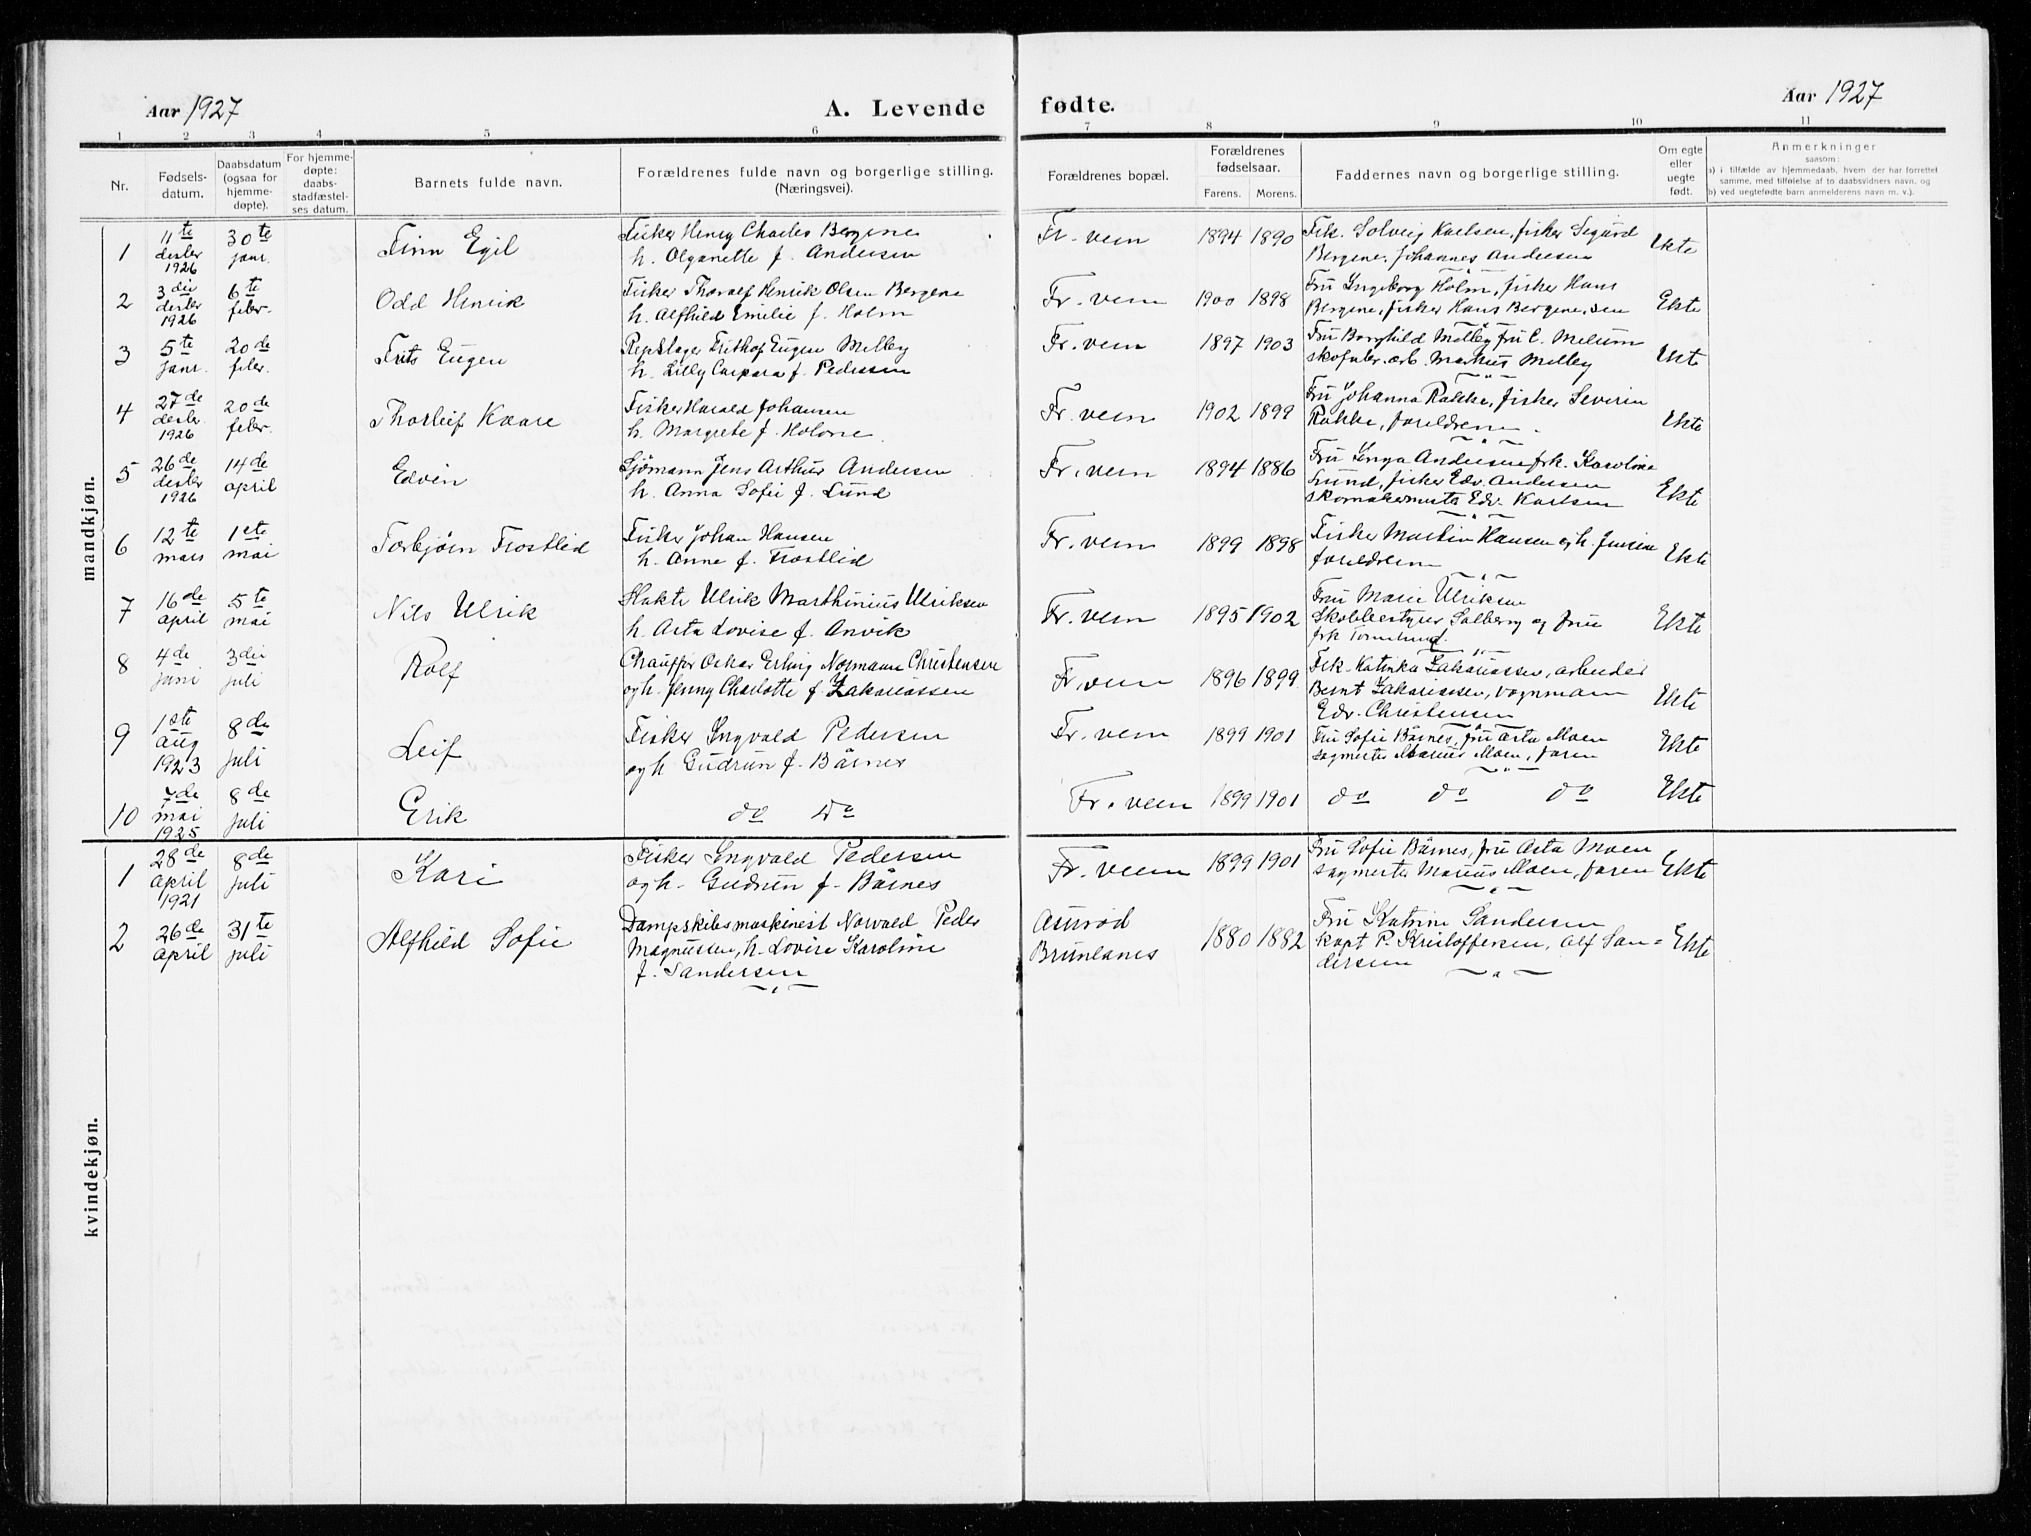 Aar 1927
A. Levende
fødte.
Aar 1927
1 2 3 4 5 6 7 8 9 10 11
Nr.
Fødsels-
datum.
Daabsdatum
(ogsaa for
hjemme-
døpte).
For hjemme-
døpte:
daabs-
stadfæstel-
ses datum.
Barnets fulde navn.
Forældrenes fulde navn og borgerlige stilling.
(Næringsvei).
Forældrenes bopæl.
Forældrenes
fødselsaar.
Farens. Morens.
Faddernes navn og borgerlige stilling.
Om egte
eller
uegte
født.
Anmerkninger
saasom:
a) i tilfælde av hjemmedaab, hvem der har forrettet
samme, med tilføielse af to daabsvidners navn, og
b) ved uegtefødte barn anmelderens navn m. v.).
mandkjøn.
1
11te
desbr
1926
30te
janr.
Finn Egil
Fisker Henry Charles Bergene
h. Olganette f. Andersen
Fr.vern
1894 1890
Frk. Solveig Karlsen, fisker Sigurd
Bergene, Johannes Andersen
Ekte
2
3die
desbr
1926
6te
febr.
Odd Henrik
Fisker Thoralf Henrik Olsen Bergene
h. Alfhild Emilie f. Holm
Fr.vern
1900 1898
Fru Ingeborg Holm, fisker Hans
Bergene, fisker Hans Bergene, sen
Ekte
3
5te
janr.
20de
febr.
Frits Eugen
Repslager Frithof Eugen Melby
h. Lilly Caspara f. Pedersen
Fr.vern
1897 1903
Fru Borghild Melby fru C. Melum
skofabr. arb. Markus Melby
Ekte
4
27de
desbr.
1926
20de
febr.
Thorleif Kaare
Fisker Harald Johansen
h. Margrete f. Holme
Fr.vern
1902 1899
Fru Johanna Rakke, fisker Severin
Rakke, foreldrene
Ekte
5
26de
desbr
1926
14de
april
Edvin
Sjømann Jens Arthur Andersen
h. Anna Sofie f. Lund
Fr.vern
1894 1886
Fru Inga Andersen frk. Karoline
Lund, fisker Edv. Andersen
skomakermester Edv. Karlsen
Ekte
6
12te
mars
1ste
mai
Torbjørn Frostlid
Fisker Johan Hansen
h. Anne f. Frostlid
Fr.vern
1899 1898
Fisker Martin Hansen og h. Jensine
foreldrene
Ekte
7
16de
april
5te
mai
Nils Ulrik
Slakter Ulrik Marthinius Ulriksen
h. Asta Lovise f. Anvik
Fr.vern
1895 1902
Fru Marie Ulriksen
Skolebestyrer Solberg og frue
frk
Ekte
8
4de
juni
3die
juli
Rolf
Chauffør Oskar Erling Normann Christensen
og h. Jenny Charlotte f. Zakariassen
Fr.vern
1896 1899
Frk. Katinka Zakariassen, arbeider
Bernt Zakariassen, vognmann
Edv. Christensen
Ekte
9
1ste
aug
1923
8de
juli
Leif
Fisker Ingvald Pedersen
og h. Gudrun f. Bårnes
Fr.vern
1899 1901
Fru Sofie Bårnes, fru Asta Moen
sagmester Marius Moen, faren
Ekte
10
7de
mai
1925
8de
juli
Erik
do do
Fr.vern
1899 1901
do do do
Ekte
kvindekjøn.
1
28de
april
1921
8de
juli
Kari
Fisker Ingvald Pedersen
og h. Gudrun f. Bårnes
Fr.vern
1899 1901
Fru Sofie Bårnes, fru Asta Moen
sagmester Marius Moen, faren
Ekte
2
26de
april
31te
juli
Alfhild Sofie
Dampskibsmaskinist Norvald Peder
Magnussen, h. Lovise Karoline
f. Sandersen
Aurød
Brunlanes
1880 1882
Fru Katrine Sandersen
kapt P. Kristoffersen, Alf San=
dersen
Ekte